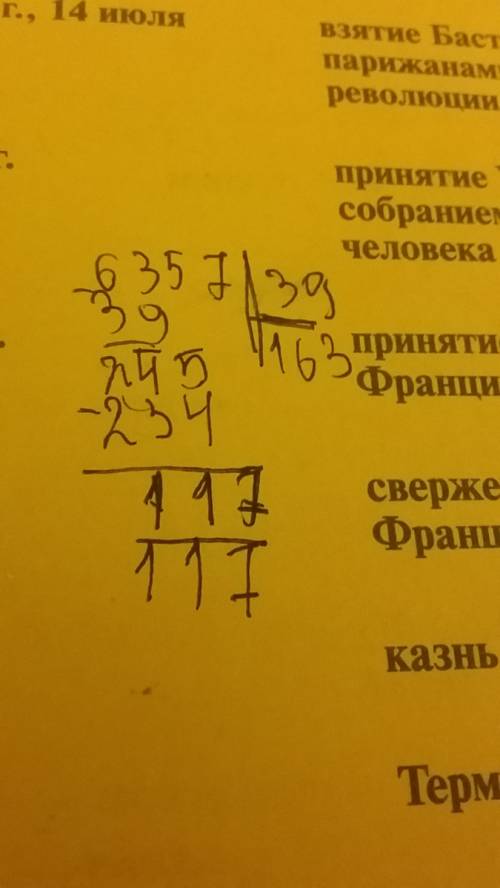 г., 14 июля
взятие Баст
парижанами
революции
г.
принятие
собранием
человека
6357 39
- 39 163
245
- 234
117
117
приняти
Франци
сверже
Франц
казнь
Терм